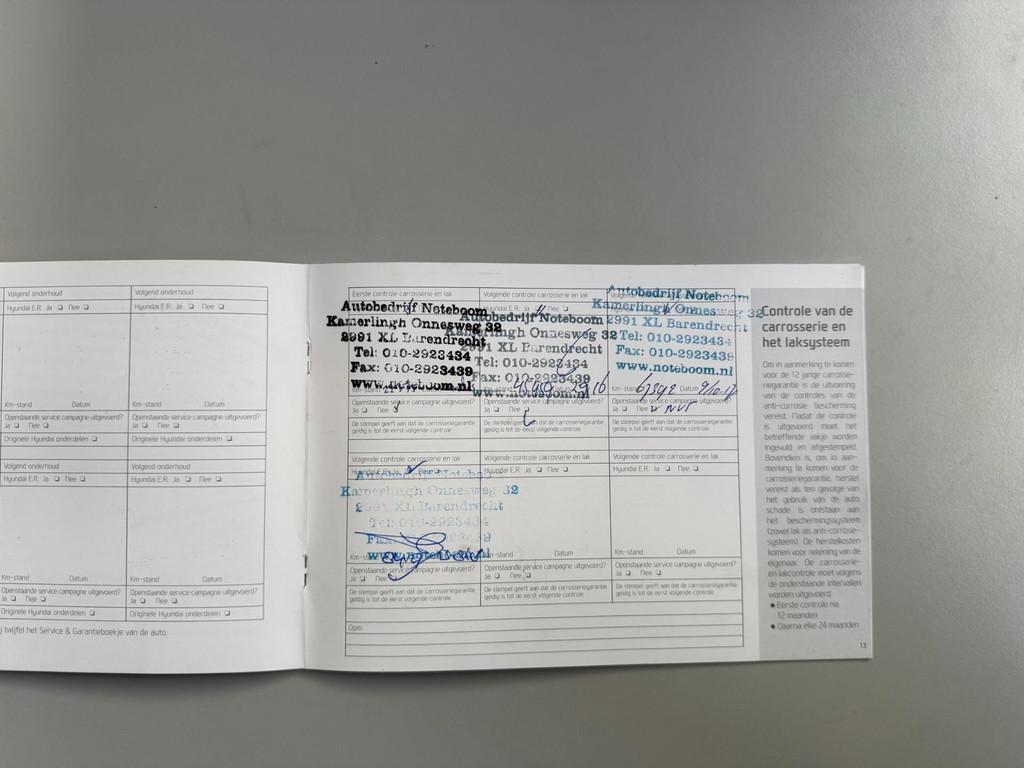 Volgend onderhoud
Volgend onderhoud
Hyundai E.R. Ja ❑ Nee ❑
Hyundai E.R. Ja ❑ Nee ❑
Km-stand Datum
Km-stand Datum
Openstaande service campagne uitgevoerd?
Ja ❑ Nee ❑
Openstaande service campagne uitgevoerd?
Ja ❑ Nee ❑
Originele Hyundai onderdelen ❑
Originele Hyundai onderdelen ❑
Volgend onderhoud
Volgend onderhoud
Hyundai E.R. Ja ❑ Nee ❑
Hyundai E.R. Ja ❑ Nee ❑
Km-stand Datum
Km-stand Datum
Openstaande service campagne uitgevoerd?
Ja ❑ Nee ❑
Openstaande service campagne uitgevoerd?
Ja ❑ Nee ❑
Originele Hyundai onderdelen ❑
Originele Hyundai onderdelen ❑
twijfel het Service & Garantieboekje van de auto.
Eerste controle carrosserie en lak
Autobedrijf Noteboom
Kamerlingh Onnesweg 32
2991 XL Barendrecht
Tel: 010-2923434
Fax: 010-2923439
www.noteboom.nl
Openstaande service campagne uitgevoerd?
Ja ❑ Nee
De stempel geeft aan dat de carrosseriegarantie
geldig is tot de eerst volgende controle
Volgende controle carrosserie en lak
Autobedrijf Noteboom
Kamerlingh Onnesweg 32
2991 XL Barendrecht
Tel: 010-2923434
Fax: 010-2923439
www.noteboom.nl
Openstaande service campagne uitgevoerd?
Ja ❑ Nee
De stempel geeft aan dat de carrosseriegarantie
geldig is tot de eerst volgende controle
Autobedrijf Noteboom
Kamerlingh Onnesweg 32
2991 XL Barendrecht
Tel: 010-2923434
Fax: 010-2923439
www.noteboom.nl
Km-stand Datum
Openstaande service campagne uitgevoerd?
Ja ❑ Nee NVT
De stempel geeft aan dat de carrosseriegarantie
geldig is tot de eerst volgende controle
Volgende controle carrosserie en lak
Hyundai E.R. Ja Nee ❑
Autobedrijf Noteboom
Kamerlingh Onnesweg 32
2991 XL Barendrecht
Tel: 010-2923434
Openstaande service campagne uitgevoerd?
Ja ❑ Nee
De stempel geeft aan dat de carrosseriegarantie
geldig is tot de eerst volgende controle
Volgende controle carrosserie en lak
Hyundai E.R. Ja ❑ Nee ❑
Km-stand Datum
Openstaande service campagne uitgevoerd?
Ja ❑ Nee ❑
De stempel geeft aan dat de carrosseriegarantie
geldig is tot de eerst volgende controle
Volgende controle carrosserie en lak
Hyundai E.R. Ja ❑ Nee ❑
Km-stand Datum
Openstaande service campagne uitgevoerd?
Ja ❑ Nee ❑
De stempel geeft aan dat de carrosseriegarantie
geldig is tot de eerst volgende controle
Opm:
Controle van de
carrosserie en
het laksysteem
Om in aanmerking te komen
voor de 12 jarige carrosse-
riegarantie is de uitvoering
van de controles van de
anti-corrosie bescherming
vereist. Nadat de controle
is uitgevoerd moet het
betreffende vakje worden
ingevuld en afgestempeld.
Bovendien is, om in aan-
merking te komen voor de
carrosseriegarantie, herstel
vereist als ten gevolge van
het gebruik van de auto
schade is ontstaan aan
het beschermingssysteem
(zowel lak als anti-corrosie-
systeem). De herstelkosten
komen voor rekening van de
eigenaar. De carrosserie-
en lakcontrole moet volgens
de onderstaande intervallen
worden uitgevoerd:
• Eerste controle na
12 maanden
• Daarna elke 24 maanden
13